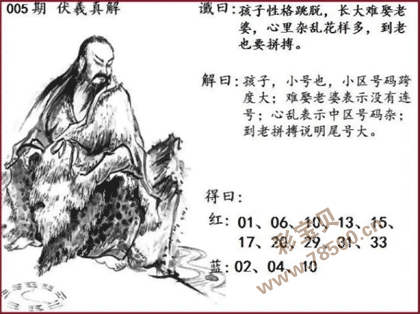 005期 伏羲真解
谶曰：孩子性格跳脱，长大难娶老
婆，心里杂乱花样多，到老
也要拼搏。
解曰：孩子，小号也，小区号码跨
度大；难娶老婆表示没有连
号；心乱表示中区号码杂；
到老拼搏说明尾号大。
得曰：
红：01、06、10，13、15、
17、20、29、31、33
蓝：02、04、10
彩宝贝
www.78500.cn